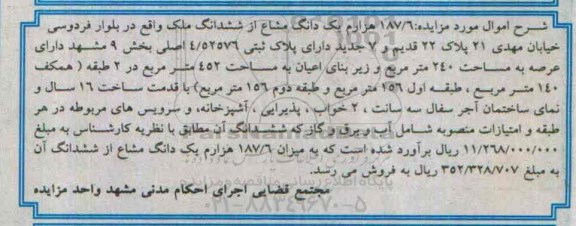 شرح اموال مورد مزایده:۱۸۷/۶ هزارم یک دانگ مشاع از ششدانگ ملک واقع در بلوار فردوسی
خیابان مهدی ۲۱ پلاک ۲۲ قدیم و ۷ جدید دارای پلاک ثبتی ۴/۵۲۵۷۶ اصلی بخش ۹ مشهد دارای
عرصه به مساحت ۲۴۰ متر مربع و زیر بنای اعیان به مساحت ۴۵۲ متر مربع در ۲ طبقه ( همکف
۱۴۰ متر مربع ، طبقه اول ۱۵۶ متر مربع و طبقه دوم ۱۵۶ متر مربع) با قدمت ساخت ۱۶ سال و
نمای ساختمان آجر سفال سه سانت ، ۲ خواب ، پذیرایی ، آشپزخانه، و سرویس های مربوطه در هر
طبقه و امتیازات منصوبه شامل آب و برق و گاز که ششدانگ آن مطابق با نظریه کارشناس به مبلغ
۱۱/۲۶۸/۰۰۰/۰۰۰ ریال برآورد شده است که به میزان ۱۸۷/۶ هزارم یک دانگ مشاع از ششدانگ آن
به مبلغ ۳۵۲/۳۲۸/۷۰۷ ریال به فروش می رسد.
مجتمع قضایی اجرای احکام مدنی مشهد واحد مزایده
پایگاه اطلاع رسانی مناقصه و مزایده
۰۲۱-۸۸۳۴۹۶۷۰-۵